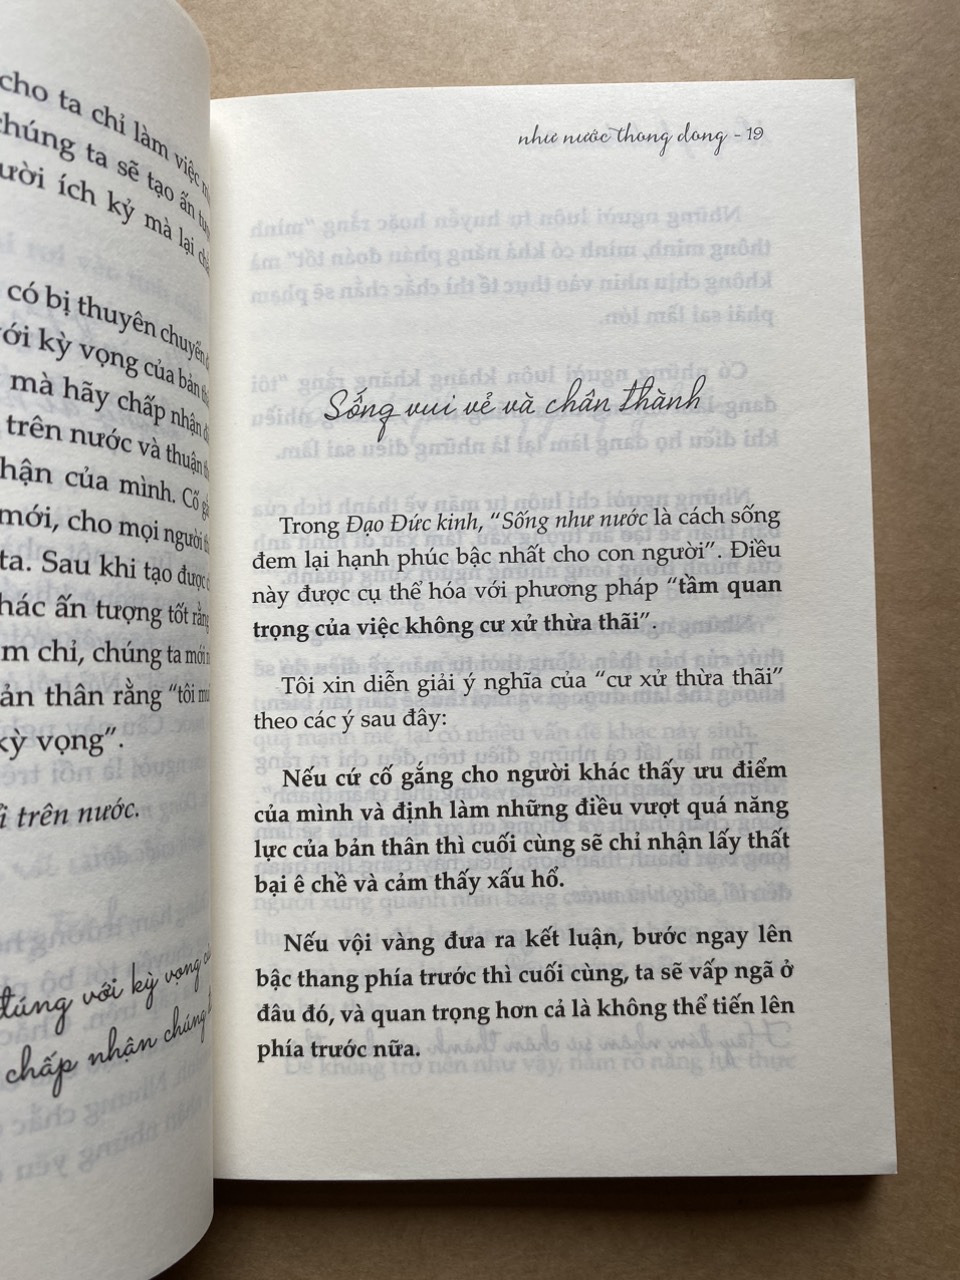 cho ta chỉ làm việc
chúng ta sẽ tạo ấn
ích kỷ mà lại
có bị thuyên chuyển
với kỳ vọng của bản
mà hãy chấp nhận
trên nước và thuận
của mình. Cố
mới, cho mọi người
ta. Sau khi tạo được
ấn tượng tốt rằng
chỉ, chúng ta mới
thân rằng “tôi
kỳ vọng”.
trên nước.
đúng với kỳ vọng
chấp nhận chúng
như nước thong dong - 19
Sống vui vẻ và chân thành
Trong Đạo Đức kinh, “Sống như nước là cách sống
đem lại hạnh phúc bậc nhất cho con người”. Điều
này được cụ thể hóa với phương pháp “tầm quan
trọng của việc không cư xử thừa thãi”.
Tôi xin diễn giải ý nghĩa của “cư xử thừa thãi”
theo các ý sau đây:
Nếu cứ cố gắng cho người khác thấy ưu điểm
của mình và định làm những điều vượt quá năng
lực của bản thân thì cuối cùng sẽ chỉ nhận lấy thất
bại ê chề và cảm thấy xấu hổ.
Nếu vội vàng đưa ra kết luận, bước ngay lên
bậc thang phía trước thì cuối cùng, ta sẽ vấp ngã ở
đâu đó, và quan trọng hơn cả là không thể tiến lên
phía trước nữa.